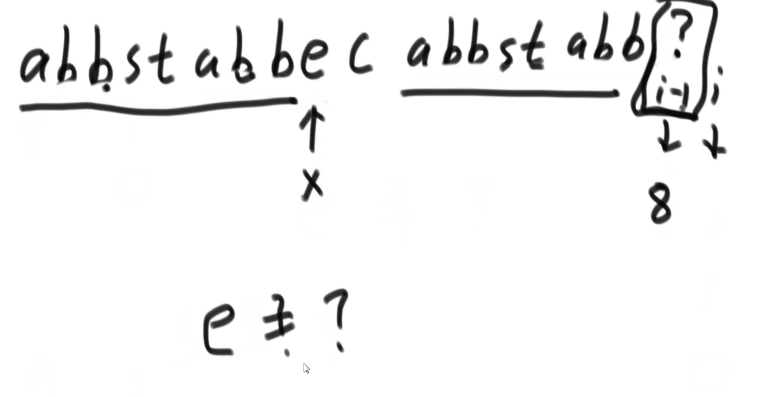 abbstabbec abbstabb?
i-1 i
x
8
e ≠ ?